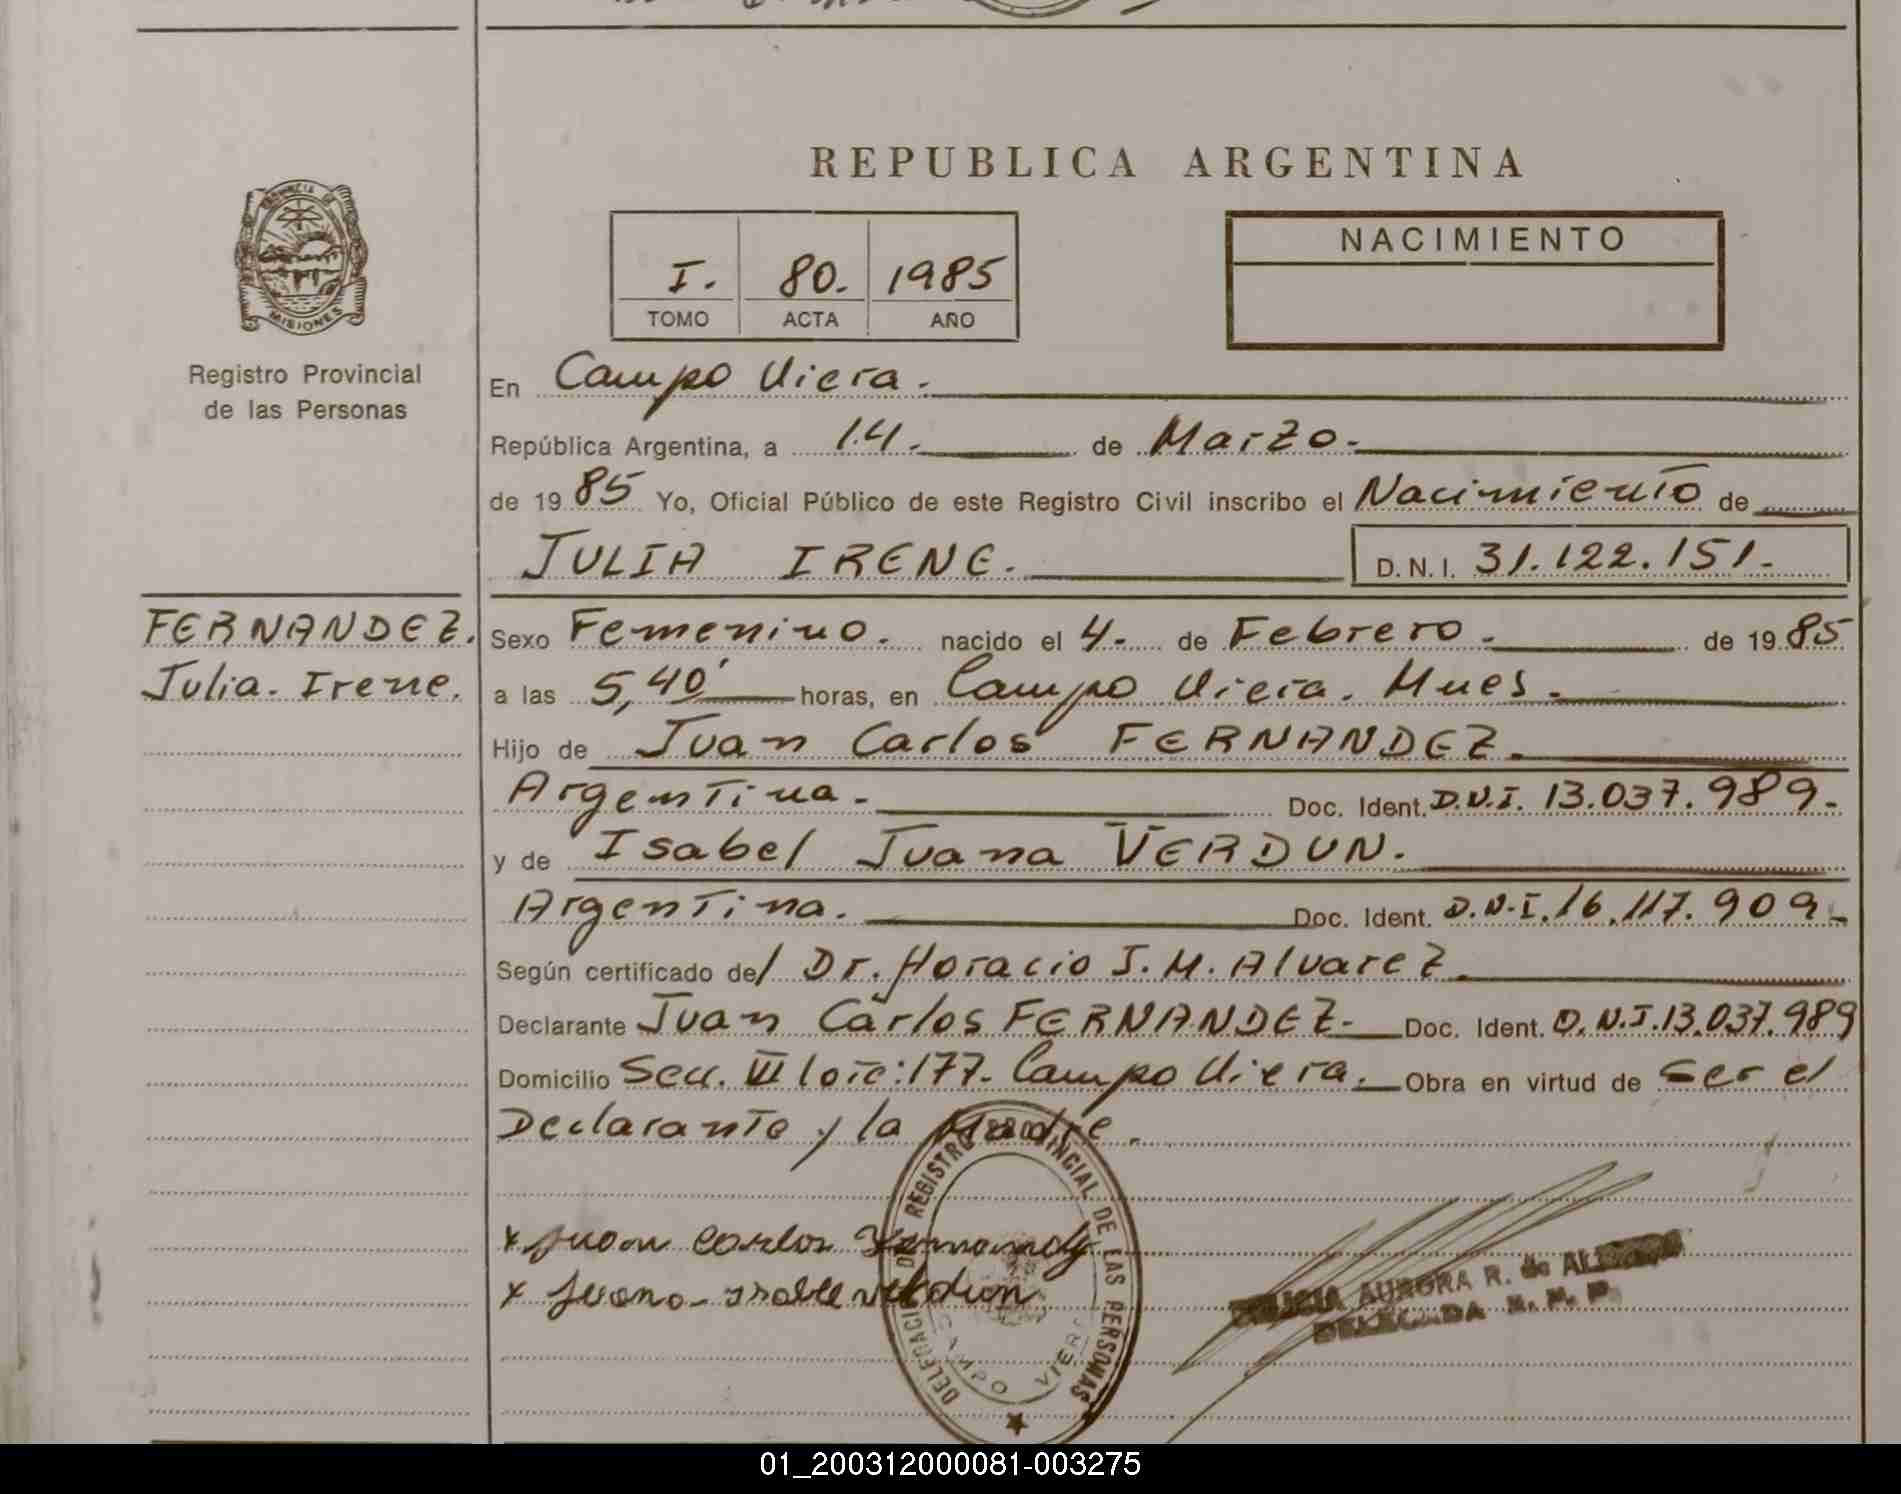 REPUBLICA ARGENTINA
PROVINCIA DE
MISIONES
Registro Provincial
de las Personas
I. 80. 1985
TOMO ACTA AÑO
NACIMIENTO
En Campo Viera.
República Argentina, a 14. de Marzo.
de 1985 Yo, Oficial Público de este Registro Civil inscribo el Nacimiento de
JULIA IRENE. D.N.I. 31.122.151.
FERNANDEZ.
Julia. Irene.
Sexo Femenino. nacido el 4. de Febrero. de 1985
a las 5,40' horas, en Campo Viera. Mnes.
Hijo de Juan Carlos FERNANDEZ.
Argentina. Doc. Ident. D.N.I. 13.037.989.
y de Isabel Juana VERDUN.
Argentina. Doc. Ident. D.N.I. 16.117.909.
Según certificado del Dr. Horacio J. M. Alvarez.
Declarante Juan Carlos FERNANDEZ. Doc. Ident. D.N.I. 13.037.989
Domicilio Secc. VI lote: 177. Campo Viera. Obra en virtud de ser el
Declarante y la Madre.
x Juan Carlos Fernandez
x Juana
DELEGACION REGISTRO PROVINCIAL DE LAS PERSONAS
CAMPO VIERA
AURORA R. de
DELEGADA
01_200312000081-003275